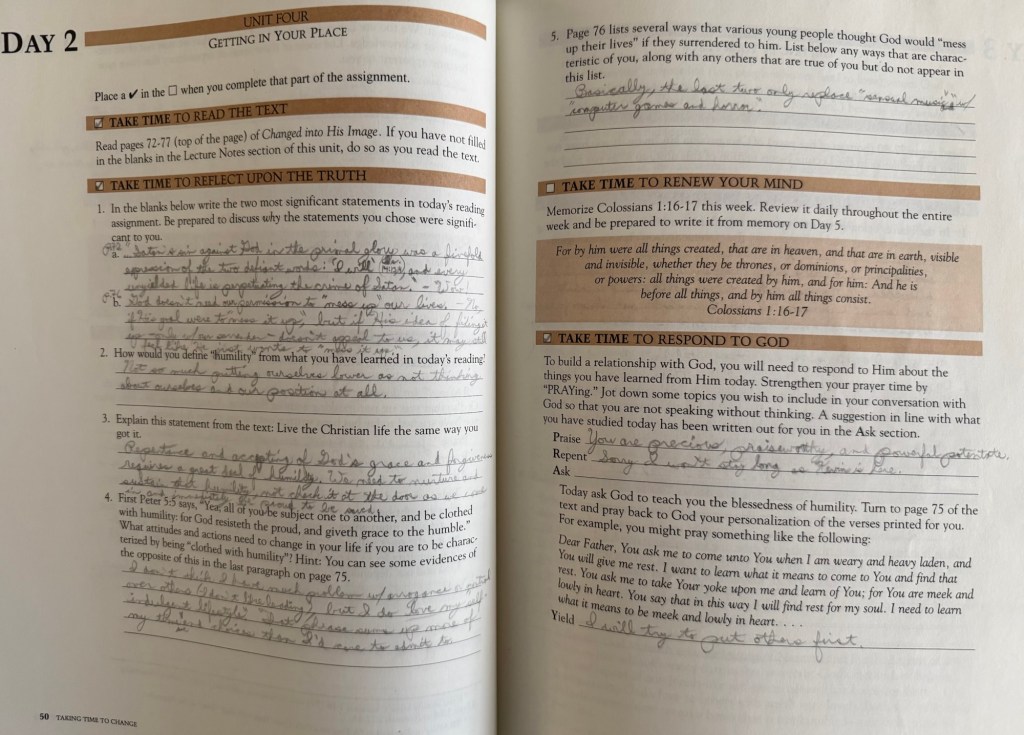 DAY 2
UNIT FOUR
GETTING IN YOUR PLACE
Place a ✔ in the ☐ when you complete that part of the assignment.
☑ TAKE TIME TO READ THE TEXT
Read pages 72-77 (top of the page) of Changed into His Image. If you have not filled
in the blanks in the Lecture Notes section of this unit, do so as you read the text.
☑ TAKE TIME TO REFLECT UPON THE TRUTH
1. In the blanks below write the two most significant statements in today's reading
assignment. Be prepared to discuss why the statements you chose were signifi-
cant to you.
a. "Satan's sin against God in the primal glory was a
expression of the two defiant words: 'I will' and every
life is perpetuating the crime of Satan." -
b. God doesn't need our permission to "mess up" our lives. - No,
if His goal were to "mess it up", but if His idea of
2. How would you define "humility" from what you have learned in today's reading?
Not so much putting ourselves lower as not thinking
about ourselves and our position at all.
3. Explain this statement from the text: Live the Christian life the same way you
got it.
Repentance and accepting of God's grace and forgiveness
requires a great deal of humility. We need to nurture and
sustain that humility, not check it at the door as we come
in
4. First Peter 5:5 says, "Yea, all of you be subject one to another, and be clothed
with humility: for God resisteth the proud, and giveth grace to the humble."
What attitudes and actions need to change in your life if you are to be charac-
terized by being "clothed with humility"? Hint: You can see some evidences of
the opposite of this in the last paragraph on page 75.
I don't think I have much problem w/ arrogance
over others but I do love my self-
indulgent lifestyle. That phrase sums up more of
my choices than I'd care to admit to.
50 TAKING TIME TO CHANGE
5. Page 76 lists several ways that various young people thought God would "mess
up their lives" if they surrendered to him. List below any ways that are charac-
teristic of you, along with any others that are true of you but do not appear in
this list.
Basically, the last two only replace "sensual music" w/
"computer games and horror".
☐ TAKE TIME TO RENEW YOUR MIND
Memorize Colossians 1:16-17 this week. Review it daily throughout the entire
week and be prepared to write it from memory on Day 5.
For by him were all things created, that are in heaven, and that are in earth, visible
and invisible, whether they be thrones, or dominions, or principalities,
or powers: all things were created by him, and for him: And he is
before all things, and by him all things consist.
Colossians 1:16-17
☑ TAKE TIME TO RESPOND TO GOD
To build a relationship with God, you will need to respond to Him about the
things you have learned from Him today. Strengthen your prayer time by
"PRAYing." Jot down some topics you wish to include in your conversation with
God so that you are not speaking without thinking. A suggestion in line with what
you have studied today has been written out for you in the Ask section.
Praise You are precious, praiseworthy, and powerful potentate.
Repent Sorry I won't stay long as Kevin is here.
Ask
Today ask God to teach you the blessedness of humility. Turn to page 75 of the
text and pray back to God your personalization of the verses printed for you.
For example, you might pray something like the following:
Dear Father, You ask me to come unto You when I am weary and heavy laden, and
You will give me rest. I want to learn what it means to come to You and find that
rest. You ask me to take Your yoke upon me and learn of You; for You are meek and
lowly in heart. You say that in this way I will find rest for my soul. I need to learn
what it means to be meek and lowly in heart. . . .
Yield I will try to put others first.